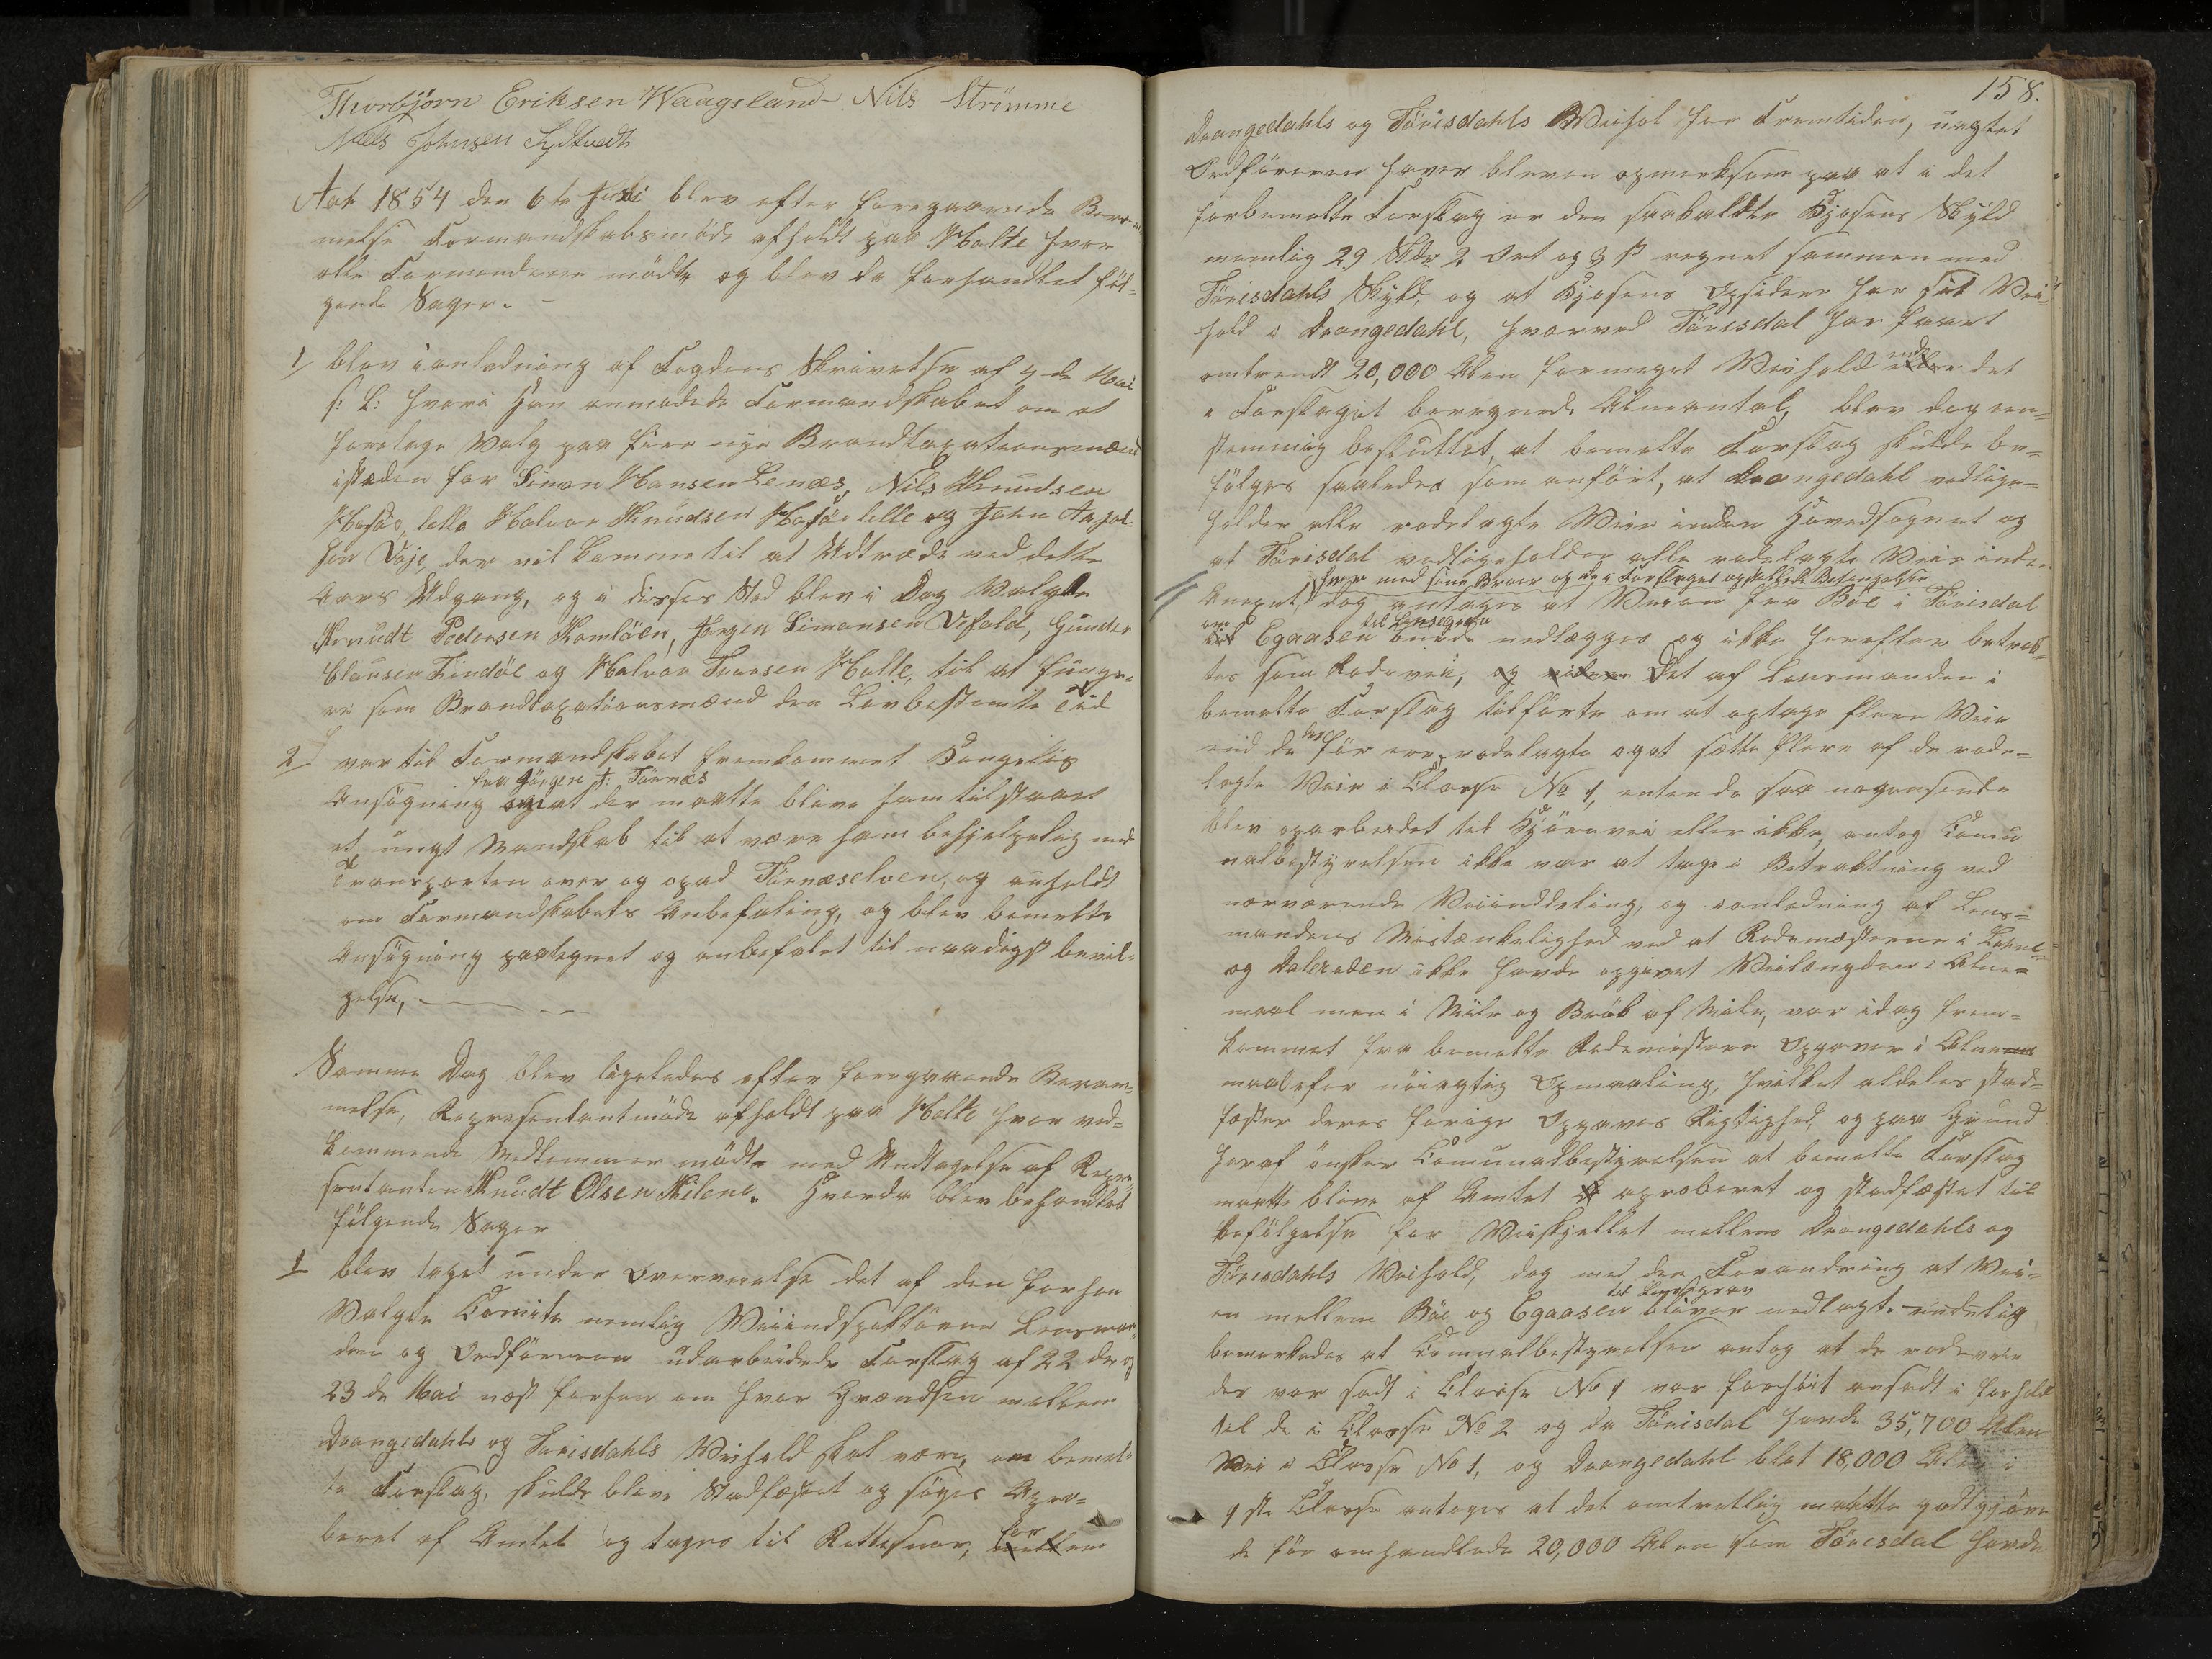 Thorbjörn Eriksen Waagsland Nils Strömme
Niels Johnsen Sydtvedt
Aar 1854 den 6te Juli blev efter foregaaende Beram
melse Formandskabsmöde afholdt paa Holte hvor
alle Formændene mödte og blev da forhandlet föl-
gende Sager. -
1/ blev ianledning af Fogdens Skrivelse af 4de Mai
s: L: hvori Han anmodede Formandskabet om at
foretage Valg paa fire nye Brandtaxationsmænd
isteden for Simon Hansen Lenæs, Nils Knudsen
lille Halvor Knudsen lille og John
sen Voje, der vil komme til at Udtræde ved dette
Aars Udgang, og i disses Sted blev i Dag Valgte
Knudt Pedersen Homlöen, Jörgen Simonsen Vefald, Gunder
Clausen Lindöe og Halvor Tronsen Holte, til at funge-
re som Brandtaxationsmænd den Lovbestemte Tid
2/ var til Formandskabet fremkommet
fra Jörgen T: Törnæs
Ansögning at der maatte blive ham tilstaaet
et ungt Mandskab til at være ham behjelpelig med
Transporten over og opad Törnæselven, og anholdt
om Formandskabets Anbefaling, og blev bemelte
Ansögning paategnet og anbefalet til naadigst bevil-
gelse,
Samme Dag blev ligeledes efter foregaaende Beram-
melse, Representantmöde afholdt paa Holte hvor ved=
kommende Medlemmer mödte med Undtagelse af Repre
sentanten Knudt Olsen Kilene. Hvorda blev behandlet
fölgende Sager
1 blev taget under Overveielse det af den forhen
Valgte Comite nemlig Veiindspektören Lensman-
den og Ordföreren udarbeidede Forslag af 22de og
23de Mai næst forhen om hvor Grændsen mellem
Drangedahls og Törisdahls Veihold skal være, om bemel-
te Forslag, skulde blive Stadfæstet og söges Apro=
beret af Amtet og tages til Rettesnor, for
158.
Drangedahls og Törisdahls Veihol for Fremtiden, uagtet
Ordföreren haver bleven opmerksom paa at i det
forbemelte Forslag er den saakaldte Kjosens Skyld
nemlig 29 Skdr 2 Ort og 3 ß regnet sammen med
Törisdahls Skyld, og at Kjosens Opsidere har sit Vei-
hold i Drangedahl, hvorved Törisdal har faaet
omtrendt 20,000 Alen formeget Veihold end det
i Forslaget beregnede Alneantal, blev dog een=
stemmig besluttet, at bemelte Forslag skulde be=
fölges saaledes som anfört, at Drangedahl vedlige=
holder alle rodelagte Veie inden Hovedsognet og
at Törisdal vedligeholder alle rodelagte Veie inden
hver med sine Broer og de i Forslaget
Anexet, dog antages at Veien fra Böe i Törisdal
over Egaasen til Lensegrev burde nedlægges og ikke herefter betrak-
tes som Rodevei, Det af Lensmanden i
bemelte Forslag tilförte om at optage flere Veie
end de för ere rodelagte ogat sætte flere af de rode=
lagte Veie i Classe No 1, enten de saa nogensinde
blev oparbeidet til Kjörevei eller ikke, antog Comu
nalbestyrelsen ikke var at tage i Betraktning ved
nærværende Veiinddeling, og ianledning af Lens=
mandens Mistænkelighed ved at Rodemesterne i
og Daleroden ikke havde opgivet Veilængden i Alne=
maal men i Mile og Brök af Mile, var idag frem=
kommet fra bemelte Rodemestere Opgaver i Alne
maal efter nöiagtig Opmaaling, hvilket aldeles stad=
fæster deres forige Opgaves Rigtighed, og paa Grund
heraf önsker Comunalbestyrelsen at bemelte Forslag
maatte blive af Amtet aproberet og stadfæstet til
Befölgelse for Veiskjellet mellem Drangedahls og
Törisdahls Veihold, dog med den Forandring at Vei=
en mellem Böe og Egaasen til Lensegrev bliver nedlagt. endelig
bemerkedes at Comunalbestyrelsen antog at de rodeveie
der var sadt i Classe No 1 var forhöit ansadt i forhold
til de i Classe No 2 og da Törisdal havde 35,700 Alen
Vei i Classe No 1, og Drangedahl blot 18,000 Alen i
1ste Classe antages at det omtrentlig maatte godtgjöre
de för omhandlede 20,000 Alen som Törisdal havde